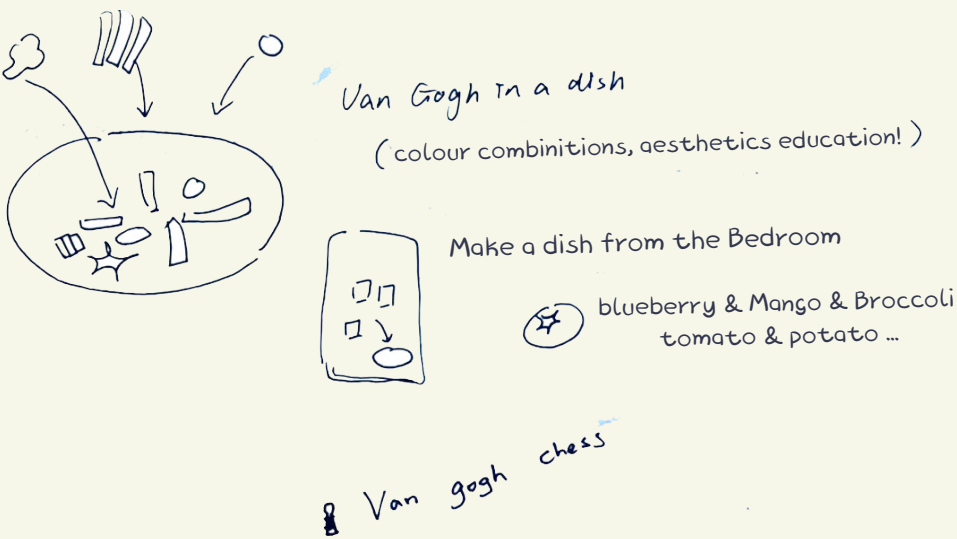 Van Gogh in a dish
(colour combinitions, aesthetics education!)
Make a dish from the Bedroom
blueberry & Mango & Broccoli
tomato & potato ...
Van gogh chess